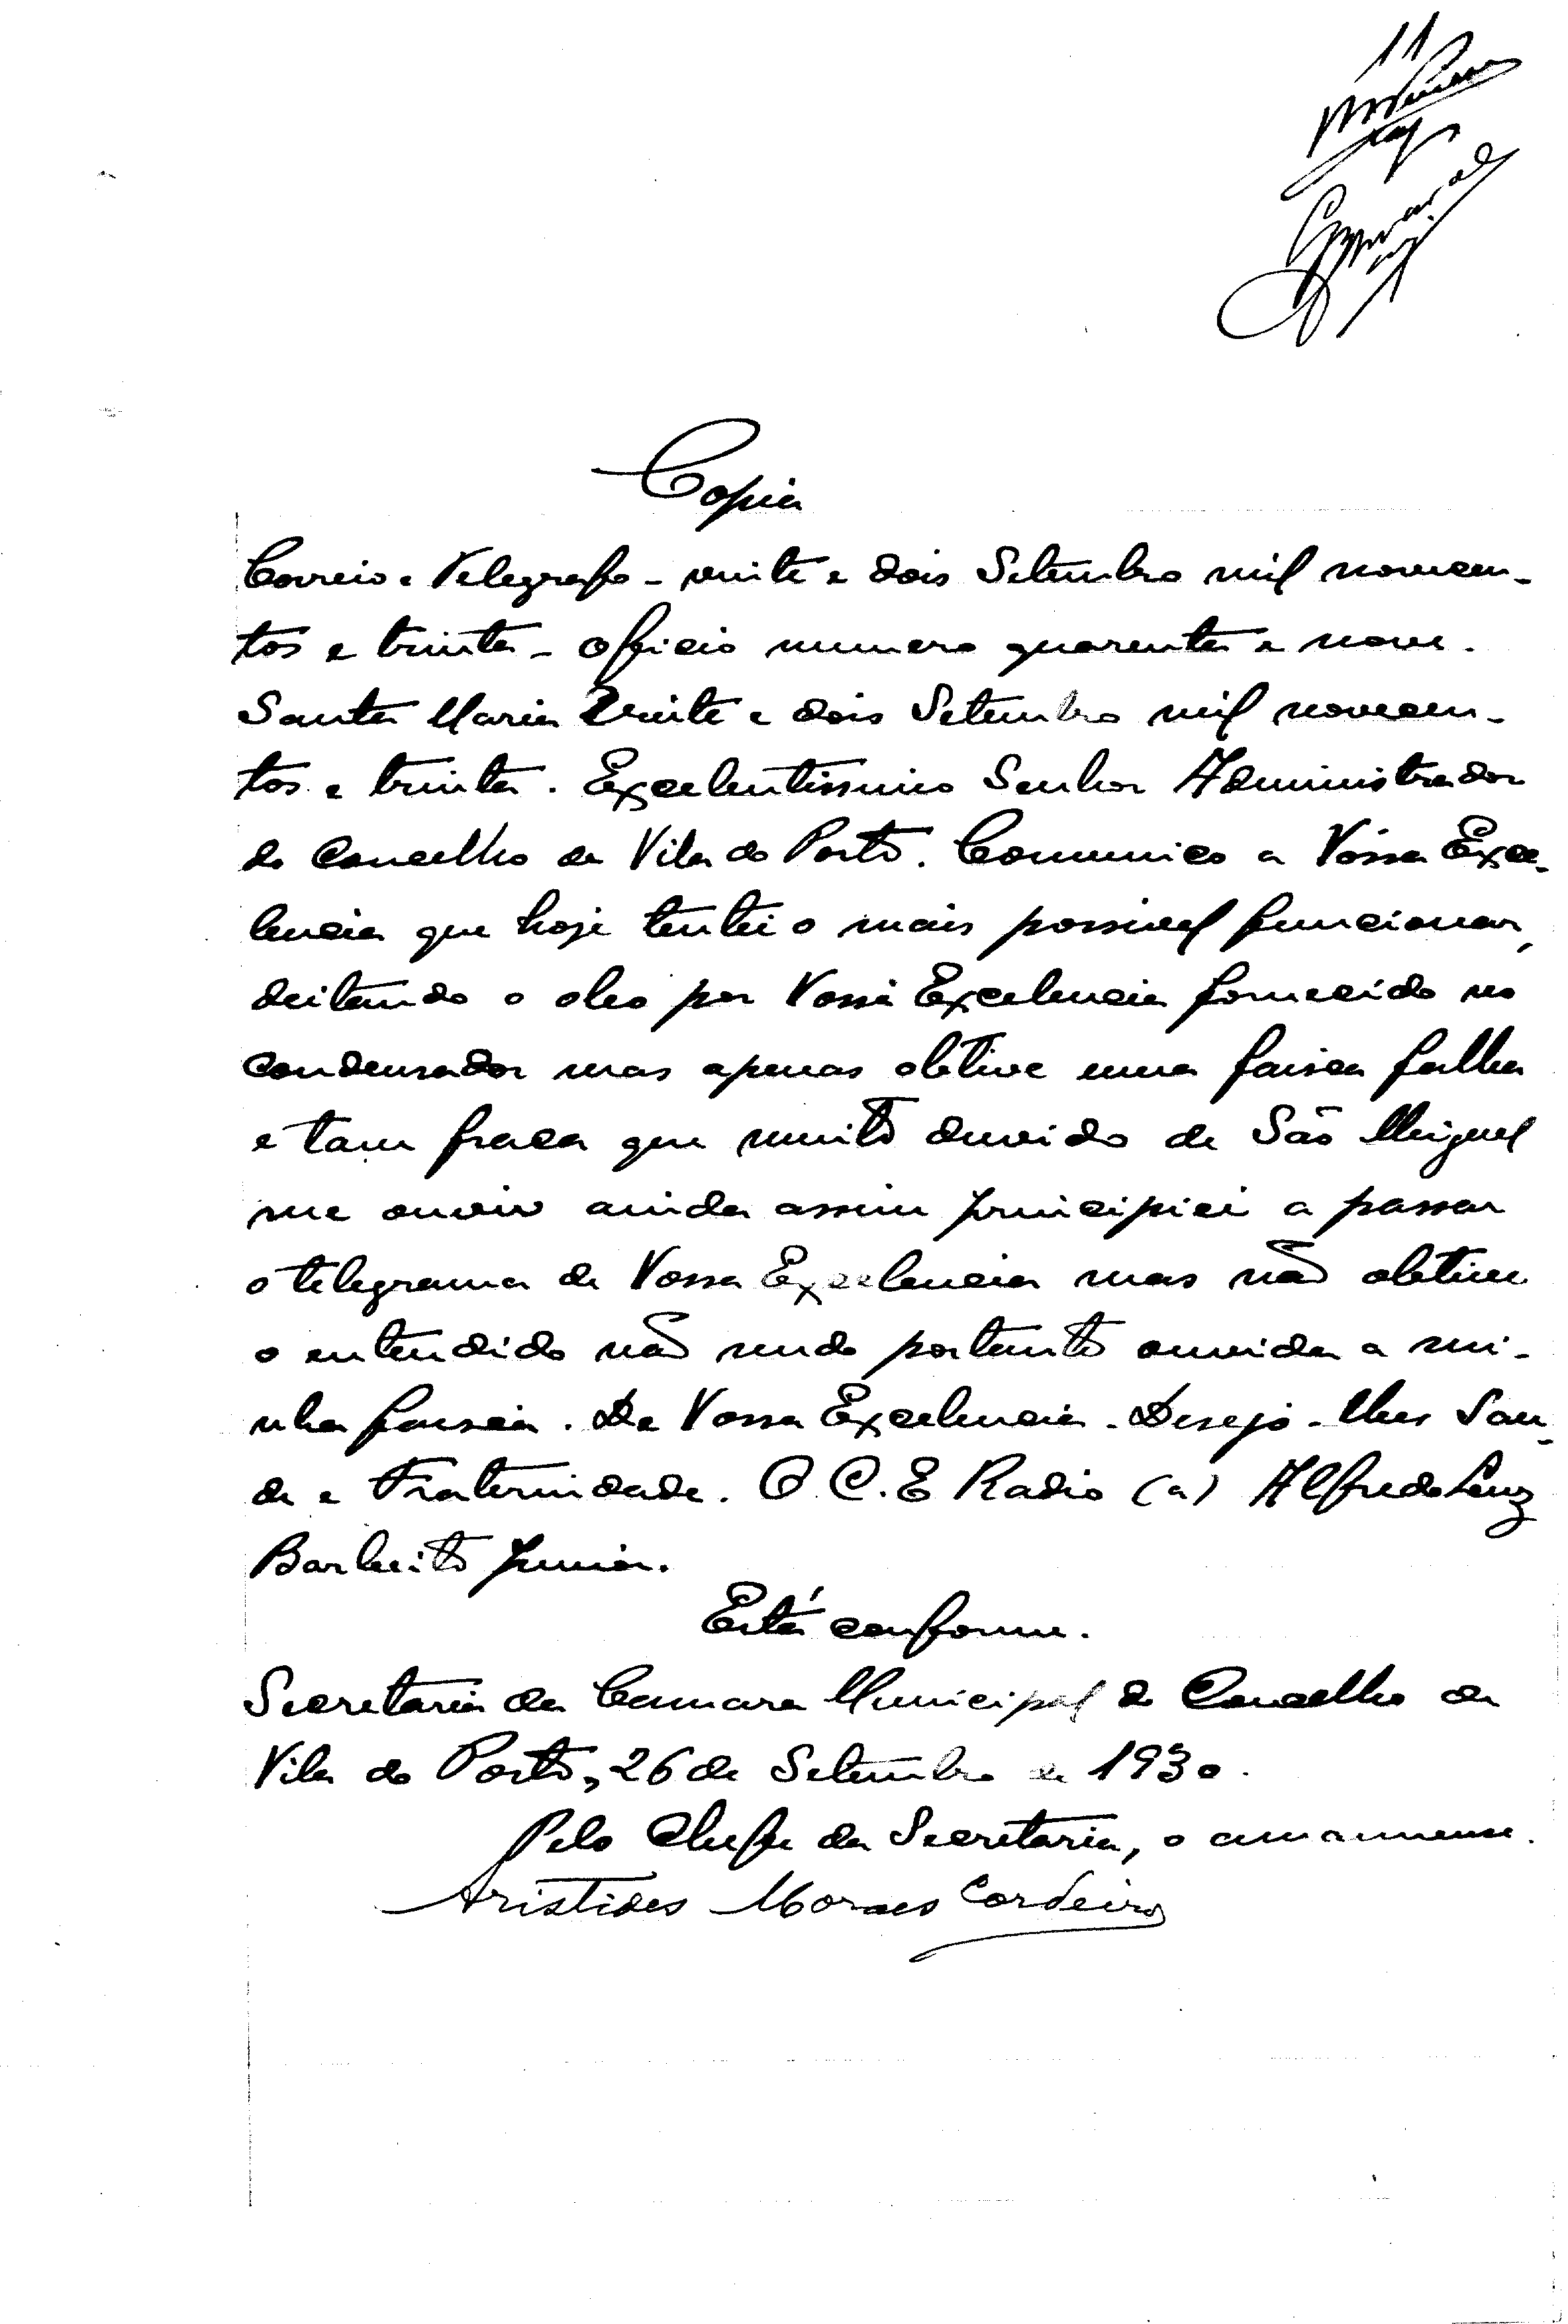 11
Copia
Correio e Telegrafo - vinte e dois Setembro mil novecen-
tos e trinta - Oficio numero quarenta e nove.
Santa Maria Vinte e dois Setembro mil novecen-
tos e trinta. Excelentissimo Senhor Administrador
do Concelho de Vila do Porto. Comunico a Vóssa Exce-
lencia que hoje tentei o mais possivel funcionar,
deitando o oleo por Vossa Excelencia fornecido no
condensador mas apenas obtive uma faisca falha
e tam fraca que muito duvido de São Miguel
me ouvir ainda assim principiei a passar
o telegrama de Vossa Excelencia mas não obtive
o entendido não sendo portanto ouvida a mi-
nha faisca. De Vossa Excelencia. Desejo-lhes Sau-
de e Fraternidade. O C. E Radio (a) Alfredo Luz
Barbeito Junior.
Está conforme.
Secretaria da Camara Municipal do Concelho de
Vila do Porto, 26 de Setembro de 1930.
Pelo Chefe da Secretaria, o amanuense.
Aristides Moraes Cordeiro